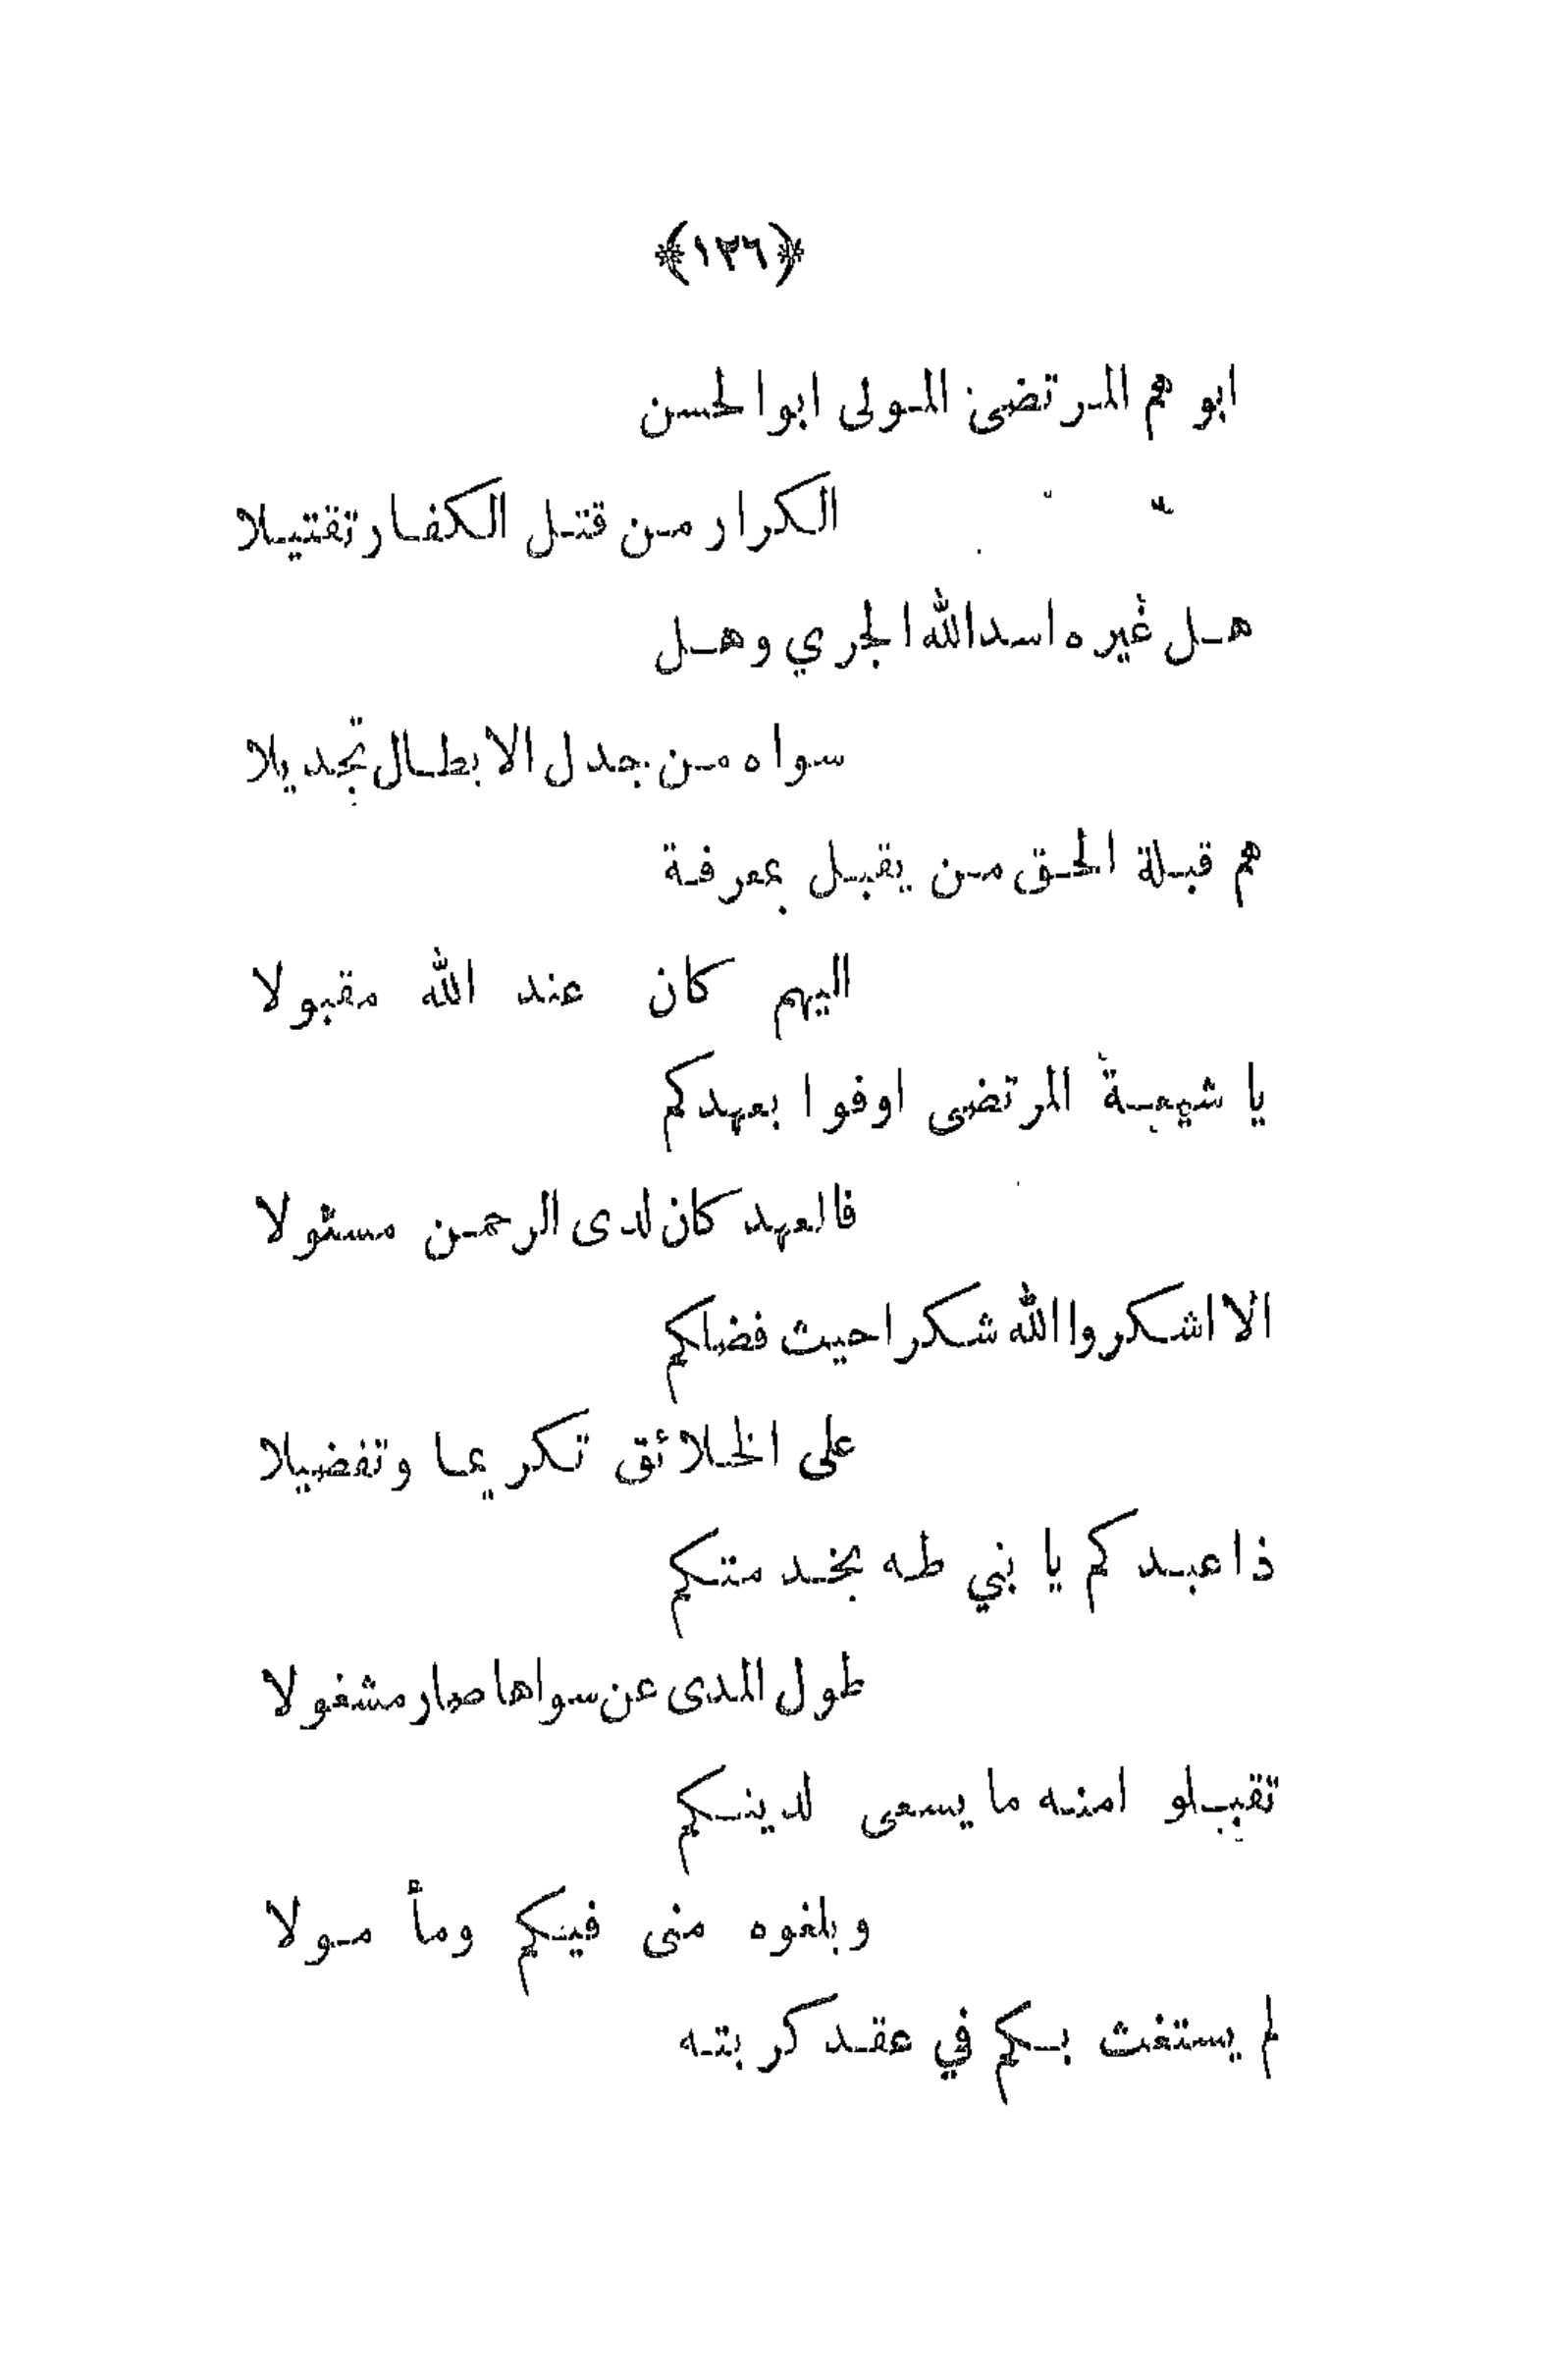 ﴿١٣٦﴾
ابوهم المرتضى المولى ابوالحسن
الكرار من قتل الكفار تقتيلا
هل غيره اسدالله الجري وهل
سواه من جدل الابطال تجديلا
هم قبلة الحق من يقبل بمعرفة
اليهم كان عند الله مقبولا
يا شيعة المرتضى اوفوا بعهدكم
فالعهد كان لدى الرحمن مسئولا
الا اشكروا الله شكرا حيث فضلكم
على الخلائق تكريما وتفضيلا
ذا عبدكم يا بني طه بخدمتكم
طول المدى عن سواها صار مشغولا
تقبلوا منه ما يسعى لدينكم
وبلغوه منى فيكم ومأمولا
لم يستغث بكم في عقد كربته